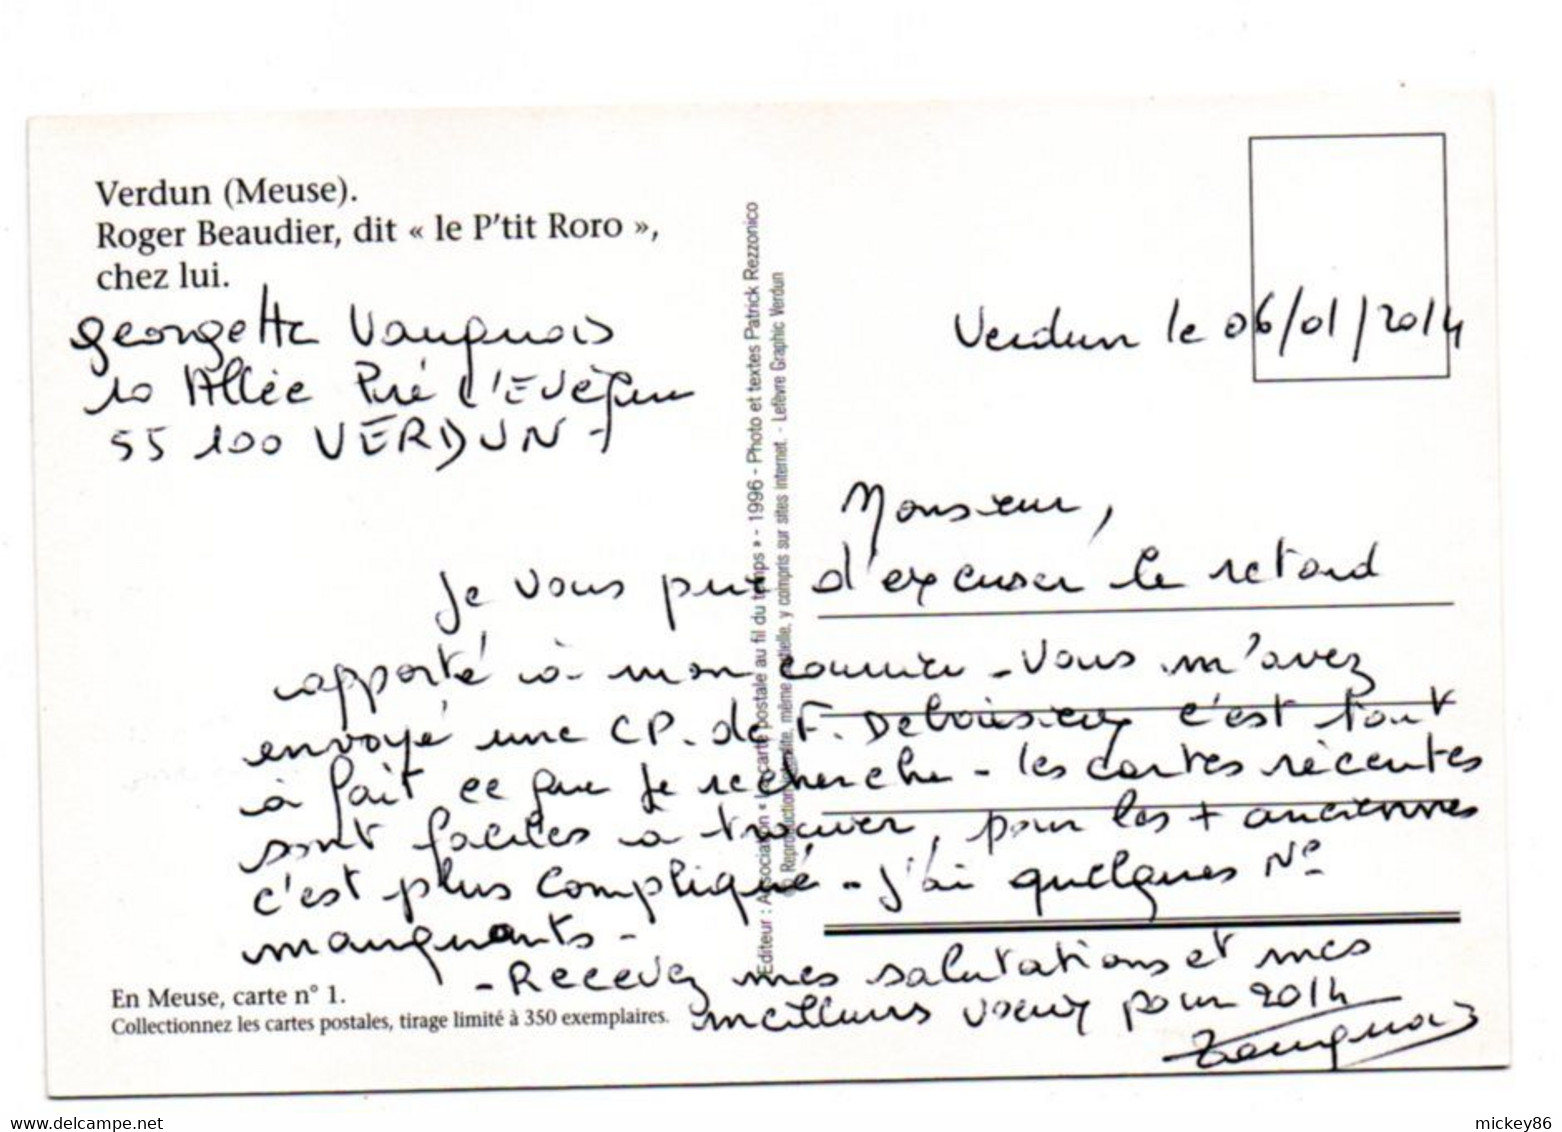 Verdun (Meuse).
Roger Beaudier, dit « le P'tit Roro »,
chez lui.
georgette Vauquois
10 Allée Pré l'Evêque
55 100 VERDUN -
Editeur : Association « la carte postale au fil du temps » - 1996 - Photo et textes Patrick Rezzonico
© Reproduction interdite, même partielle, y compris sur sites internet. - Lefèvre Graphic Verdun
Verdun le 06/01/2014
Monsieur,
Je vous prie d'excuser le retard
apporté à mon courrier - Vous m'avez
envoyé une CP. de F. Deboisieux c'est tout
à fait ce que je recherche - les cartes récentes
sont faciles à trouver, pour les + anciennes
c'est plus compliqué - J'ai quelques N°
manquants -
- Recevez mes salutations et mes
meilleurs voeux pour 2014
Vauquois
En Meuse, carte n° 1.
Collectionnez les cartes postales, tirage limité à 350 exemplaires.
delcampe.net
mickey86